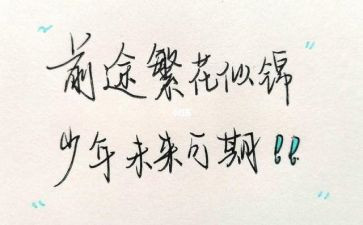 前途繁花似锦
少年未来可期!!